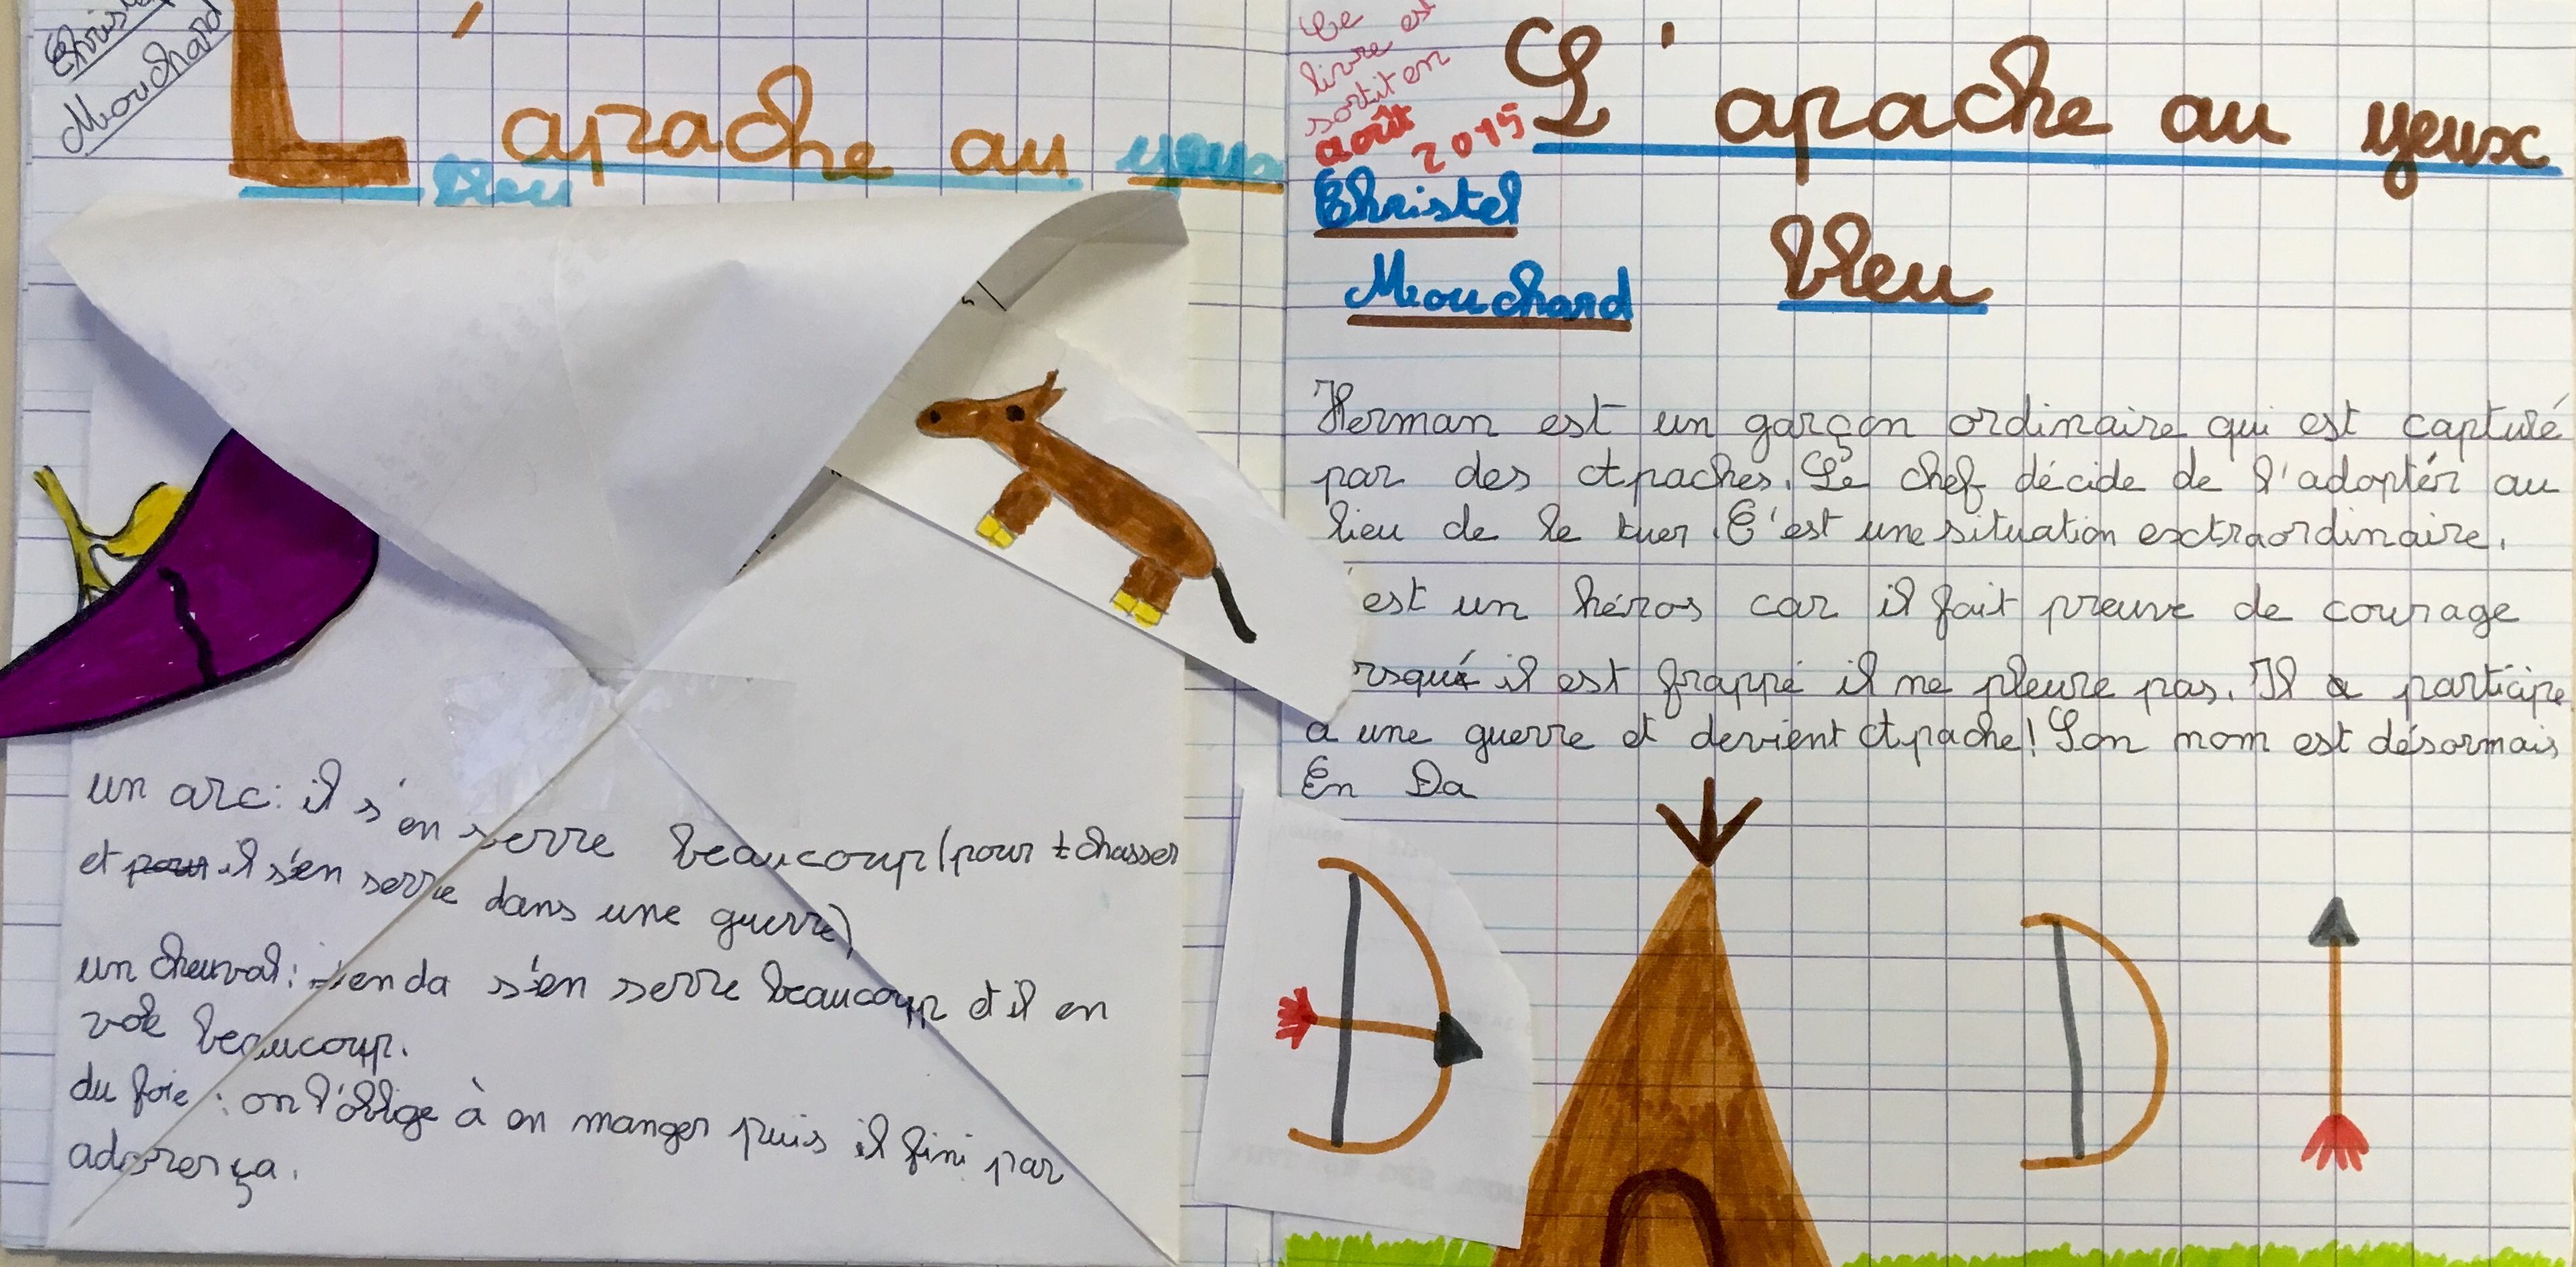 Christel
Mouchard
L'apache au yeux
bleu
un arc: il s'en serre beaucoup (pour chasser
et pour il s'en serre dans une guerre)
un cheval: enda s'en serre beaucoup et il en
vole beaucoup.
du foie: on l'oblige à en manger puis il fini par
adorer ça.
Ce
livre est
sortit en
août
2015
L'apache au yeux
bleu
Christel
Mouchard
Herman est un garçon ordinaire qui est capturé
par des Apaches. Le chef décide de l'adoptér au
lieu de le tuer. C'est une situation exctraordinaire.
est un héros car il fait preuve de courage
rsqué il est frappé il ne pleure pas. Il a participe
a une guerre et devient Apache! Son nom est désormais
En Da